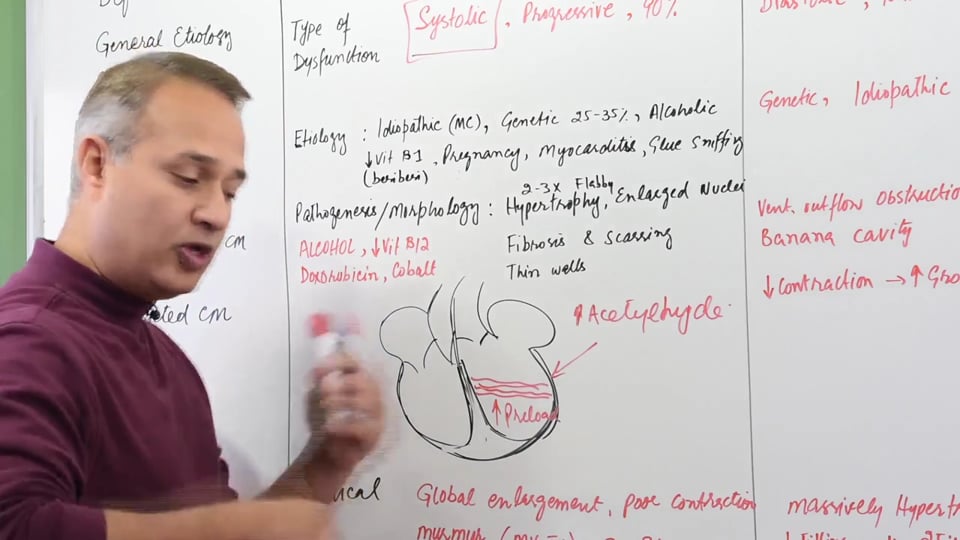 General Etiology
CM
CM
Type of
Dysfunction
Systolic, Progressive, 90%
Etiology : Idiopathic (MC), Genetic 25-35%, Alcoholic
↓Vit B1, Pregnancy, Myocarditis, Glue Sniffing
(beriberi)
2-3x Flabby
Pathogenesis/Morphology : Hypertrophy, Enlarged Nuclei
ALCOHOL, ↓Vit B12
Doxorubicin, Cobalt
Fibrosis & Scarring
Thin walls
↑Acetylhyde
↑Preload
Global enlargement, poor contraction
murmur
Genetic, Idiopathic
Vent. outflow Obstruction
Banana cavity
↓Contraction → ↑
massively